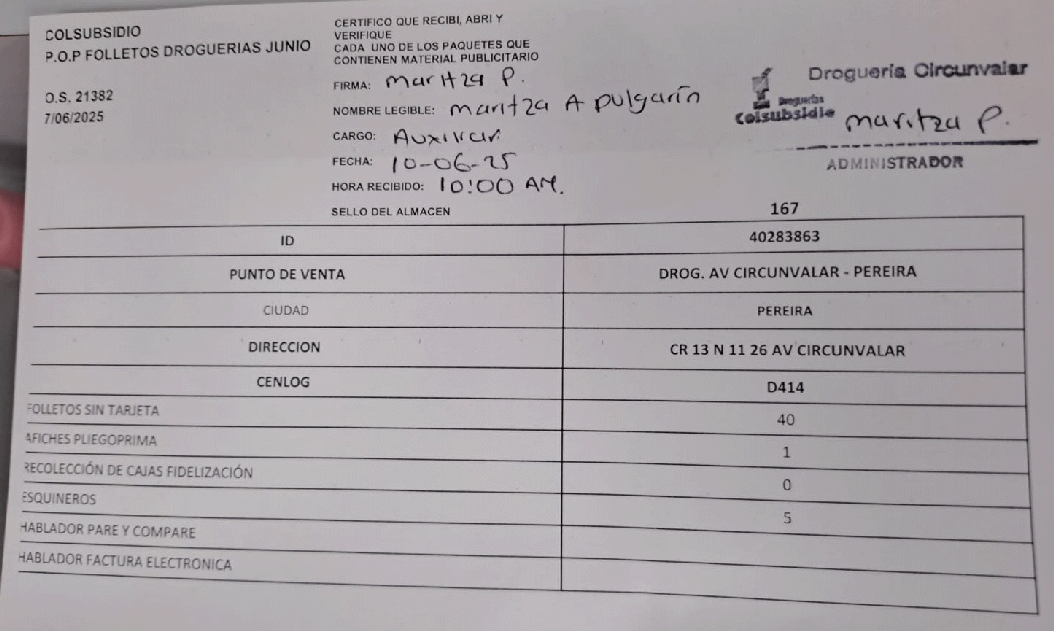 COLSUBSIDIO
P.O.P FOLLETOS DROGUERIAS JUNIO
O.S. 21382
7/06/2025
CERTIFICO QUE RECIBI, ABRI Y
VERIFIQUE
CADA UNO DE LOS PAQUETES QUE
CONTIENEN MATERIAL PUBLICITARIO
FIRMA: Maritza P.
NOMBRE LEGIBLE: Maritza A Pulgarín
CARGO: Auxiliar
FECHA: 10-06-25
HORA RECIBIDO: 10:00 AM.
SELLO DEL ALMACEN
Droguería Circunvalar
Droguerías
Colsubsidio
Maritza P.
ADMINISTRADOR
167
ID 40283863
PUNTO DE VENTA DROG. AV CIRCUNVALAR - PEREIRA
CIUDAD PEREIRA
DIRECCION CR 13 N 11 26 AV CIRCUNVALAR
CENLOG D414
FOLLETOS SIN TARJETA 40
AFICHES PLIEGOPRIMA 1
RECOLECCIÓN DE CAJAS FIDELIZACIÓN 0
ESQUINEROS 5
HABLADOR PARE Y COMPARE
HABLADOR FACTURA ELECTRONICA